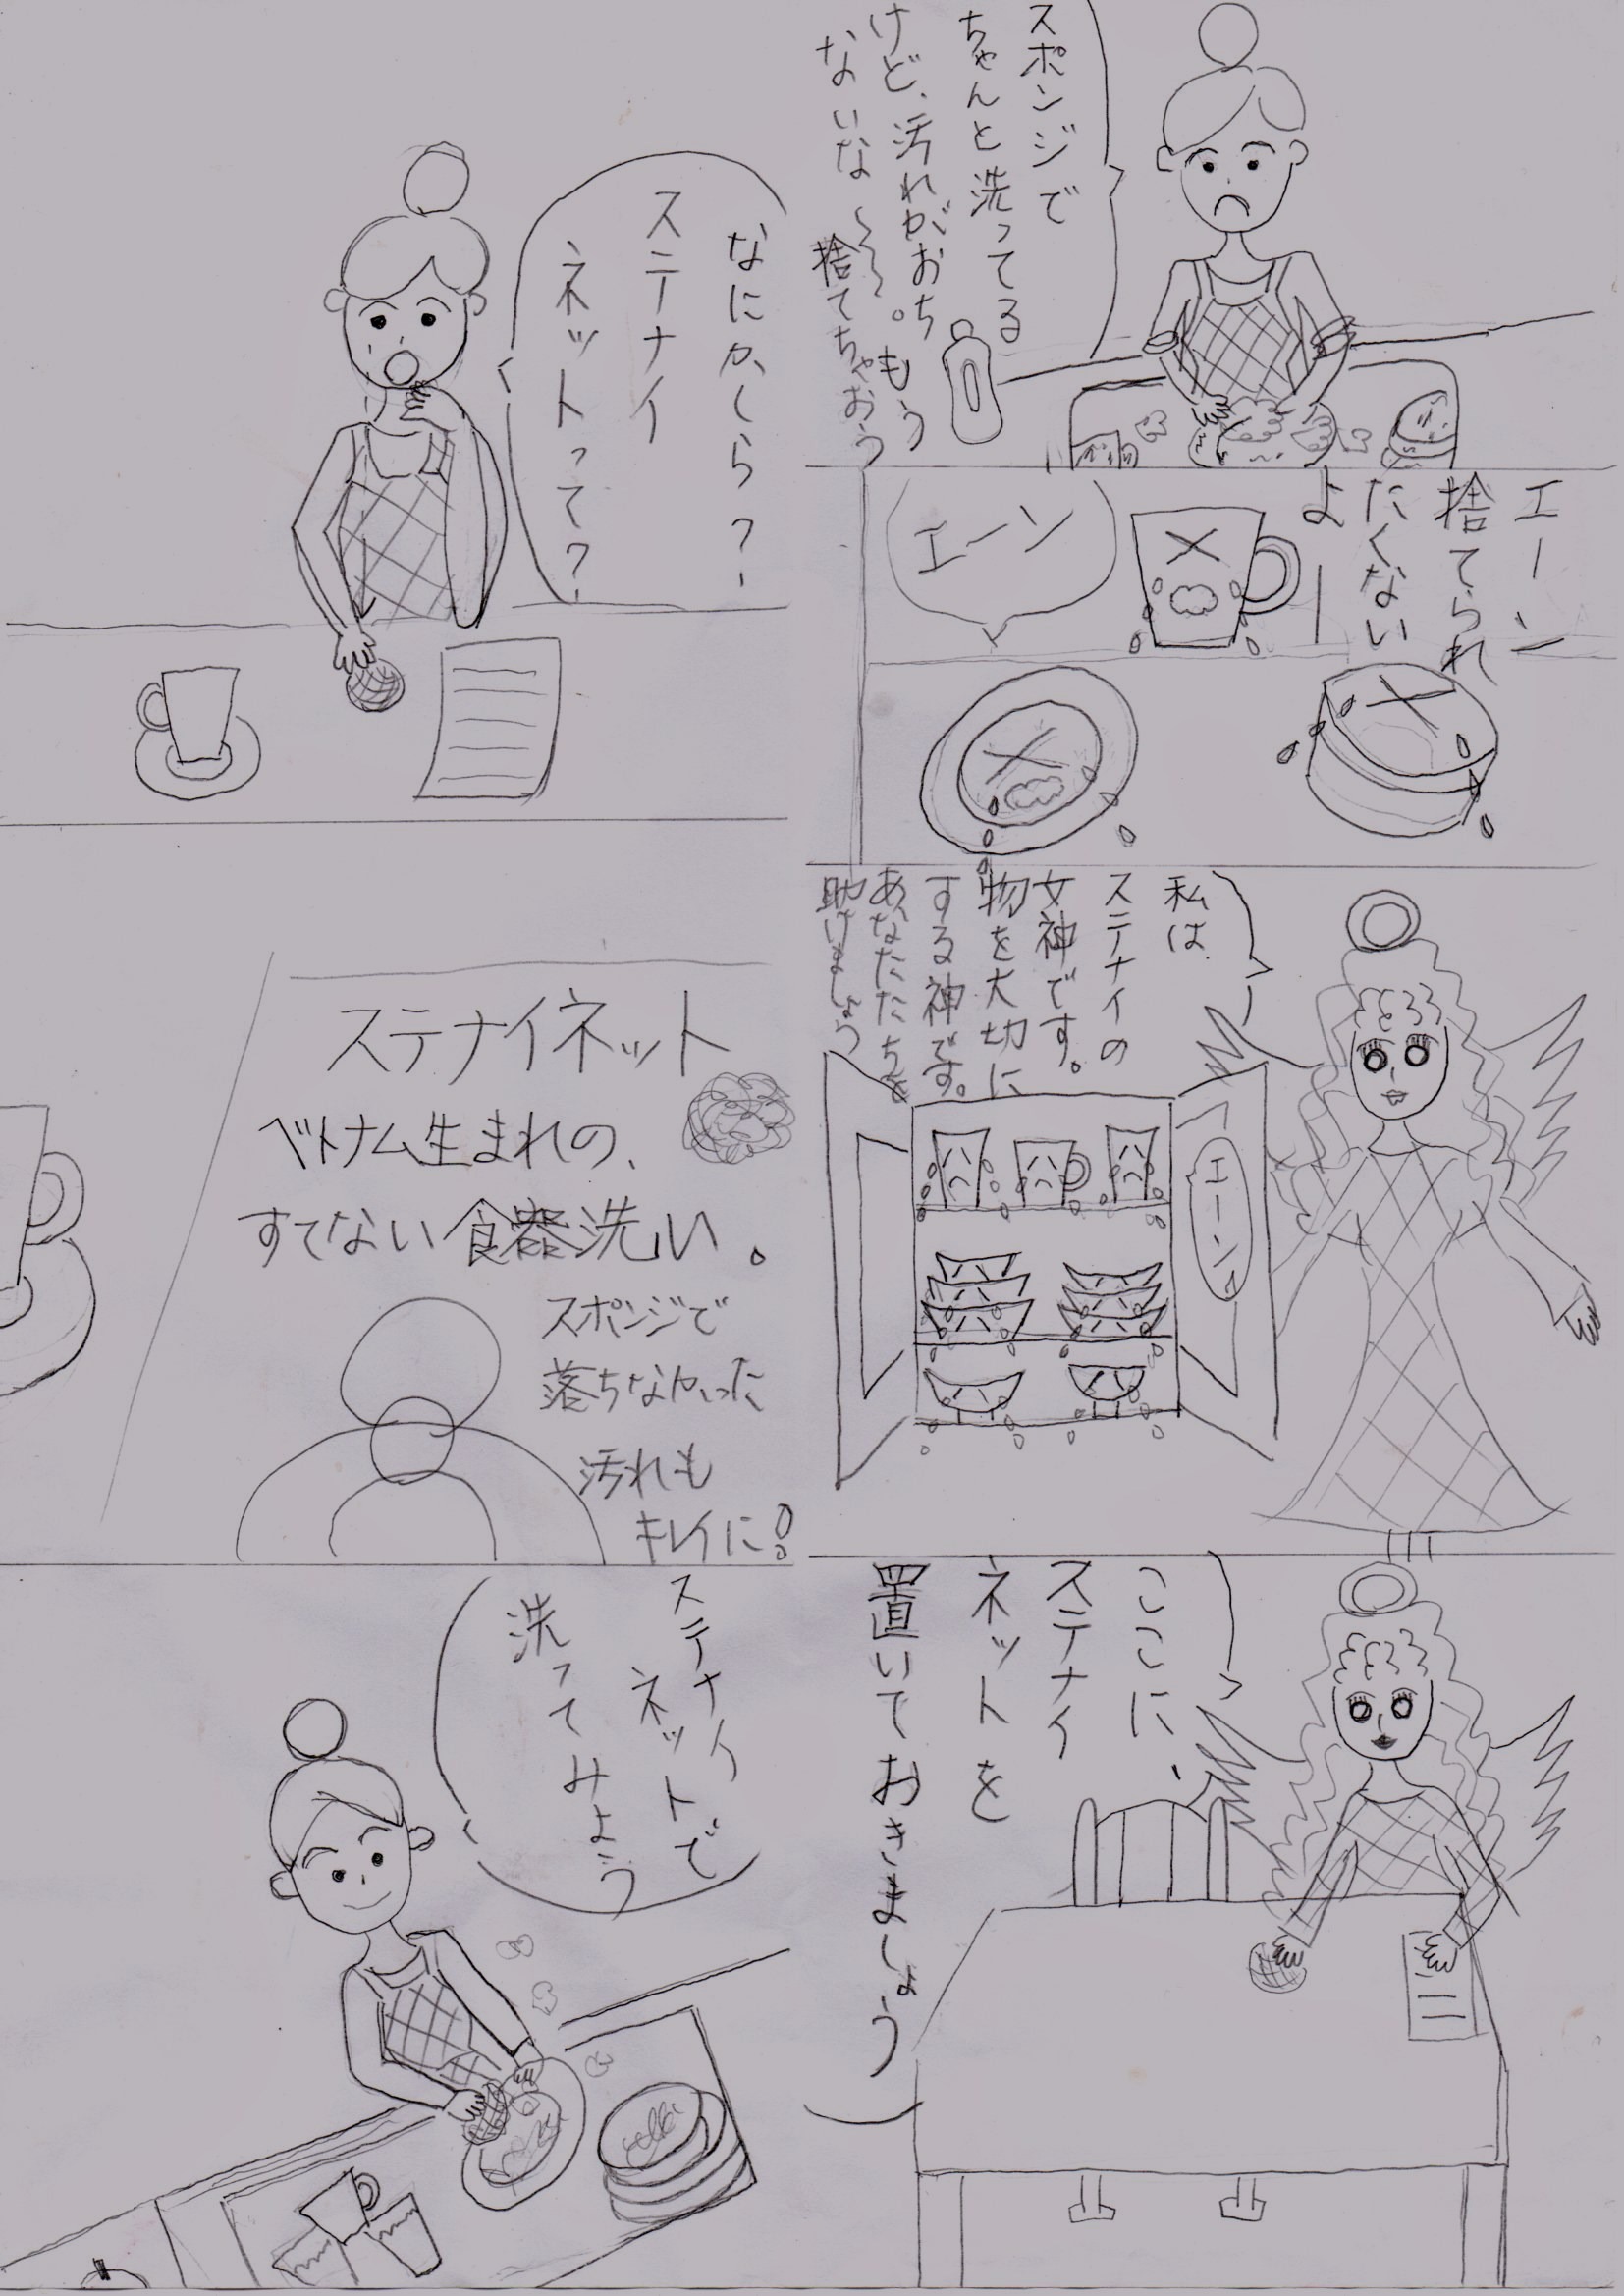 スポンジで
ちゃんと洗ってる
けど、汚れがおち
ないな〜〜〜。もう
捨てちゃおう
エーン
捨てられ
たくない
よー
エーン
私は
ステナイの
女神です。
物を大切に
する神です。
あなたたちを
助けましょう
エーン
ここに、
ステナイ
ネットを
置いておきましょう
なにかしら?
ステナイ
ネットって?
ステナイネット
ベトナム生まれの、
すてない食器洗い。
スポンジで
落ちなかった
汚れも
キレイに!
ステナイ
ネットで
洗ってみよう